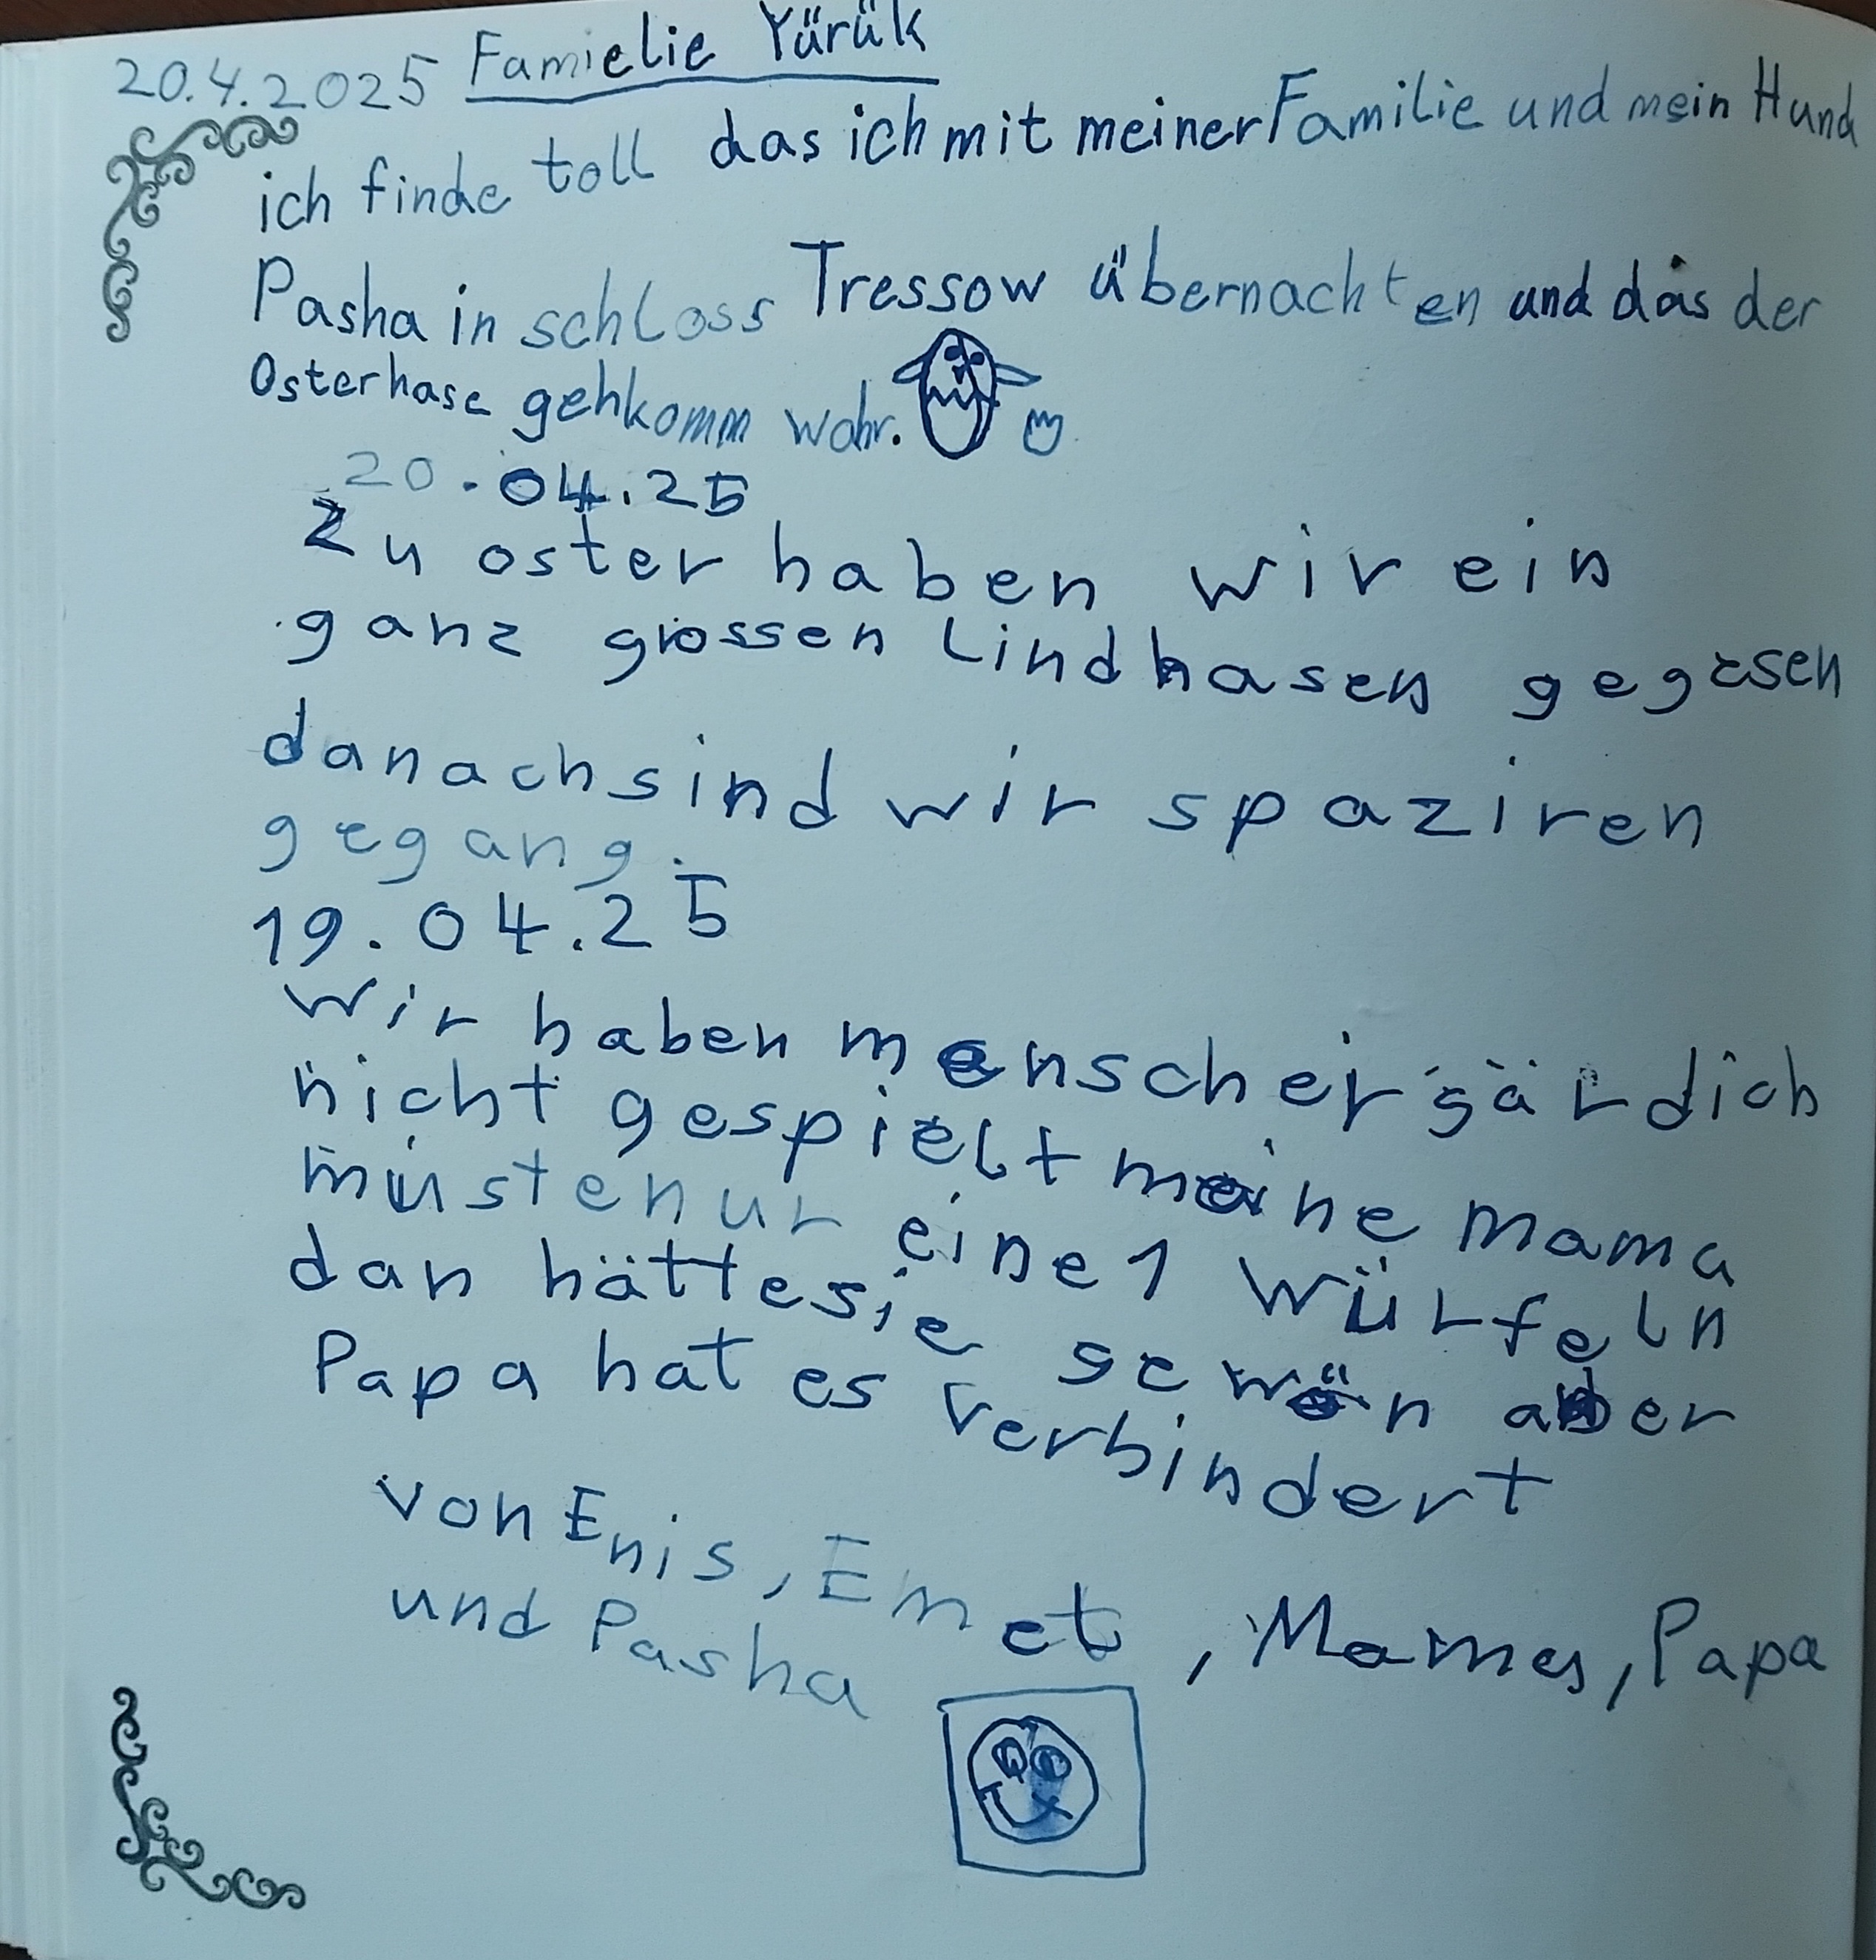 20.4.2025 Famielie Yürük
ich finde toll das ich mit meiner Familie und mein Hund
Pasha in schloss Tressow übernachten und das der
Osterhase gehkomm wahr.
20.04.25
Zu oster haben wir ein
ganz grossen Lindhasen gegesen
danach sind wir spaziren
gegang.
19.04.25
Wir haben menscher gär dich
nicht gespielt meine mama
müste nur eine 1 würfeln
dan hätte sie gewön aber
Papa hat es verhindert
von Enis, Emet, Mama, Papa
und Pasha